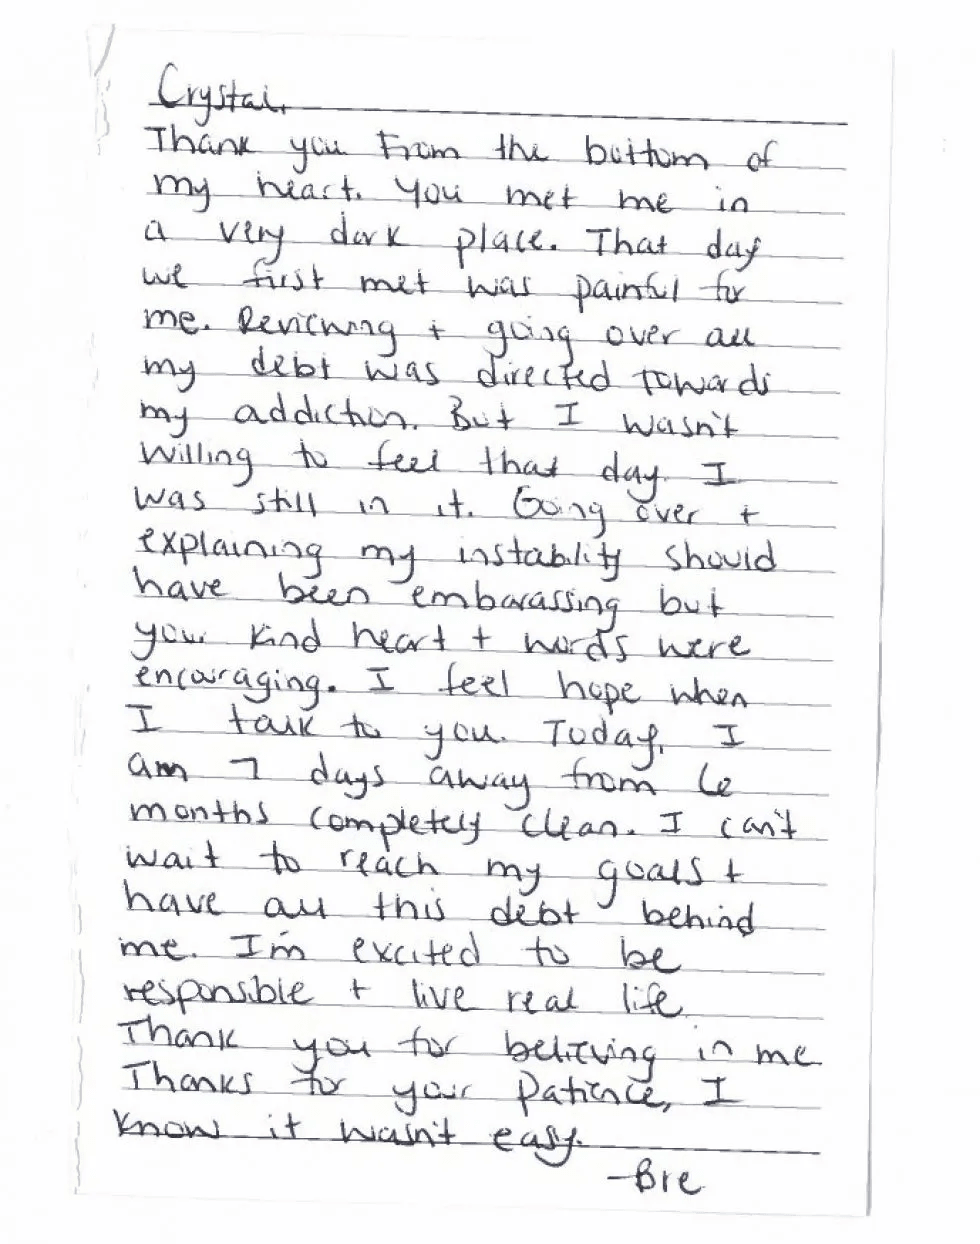 Crystal,
Thank you From the bottom of
my heart. You met me in
a very dark place. That day
we first met was painful for
me. Reviewing + going over all
my debt was directed towards
my addiction. But I wasn't
willing to feel that day. I
was still in it. Going over +
explaining my instablity should
have been embarassing but
your kind heart + words were
encouraging. I feel hope when
I talk to you. Today, I
am 7 days away from 6
months completely clean. I can't
wait to reach my goals +
have all this debt behind
me. I'm excited to be
responsible + live real life.
Thank you for believing in me
Thanks for your patience, I
know it wasn't easy.
-Bre